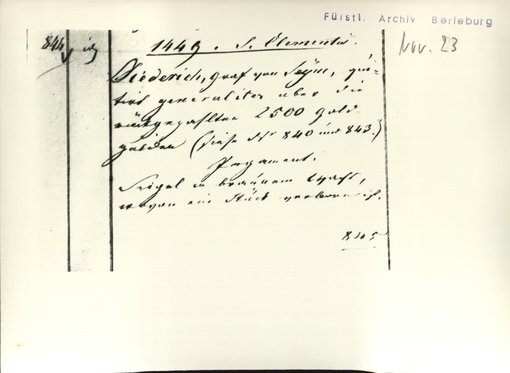 Fürstl. Archiv Berleburg
Nov. 23
844
1449. S. Clementis.
Diederich, Graf von Sayn, quit-
tirt generaliter über die
rückgezahlten 2500 Gold-
gulden (siehe No 840 und 843.)
Pergament.
Siegel in braunem Wachs,
wovon ein Stück verloren ist.
845